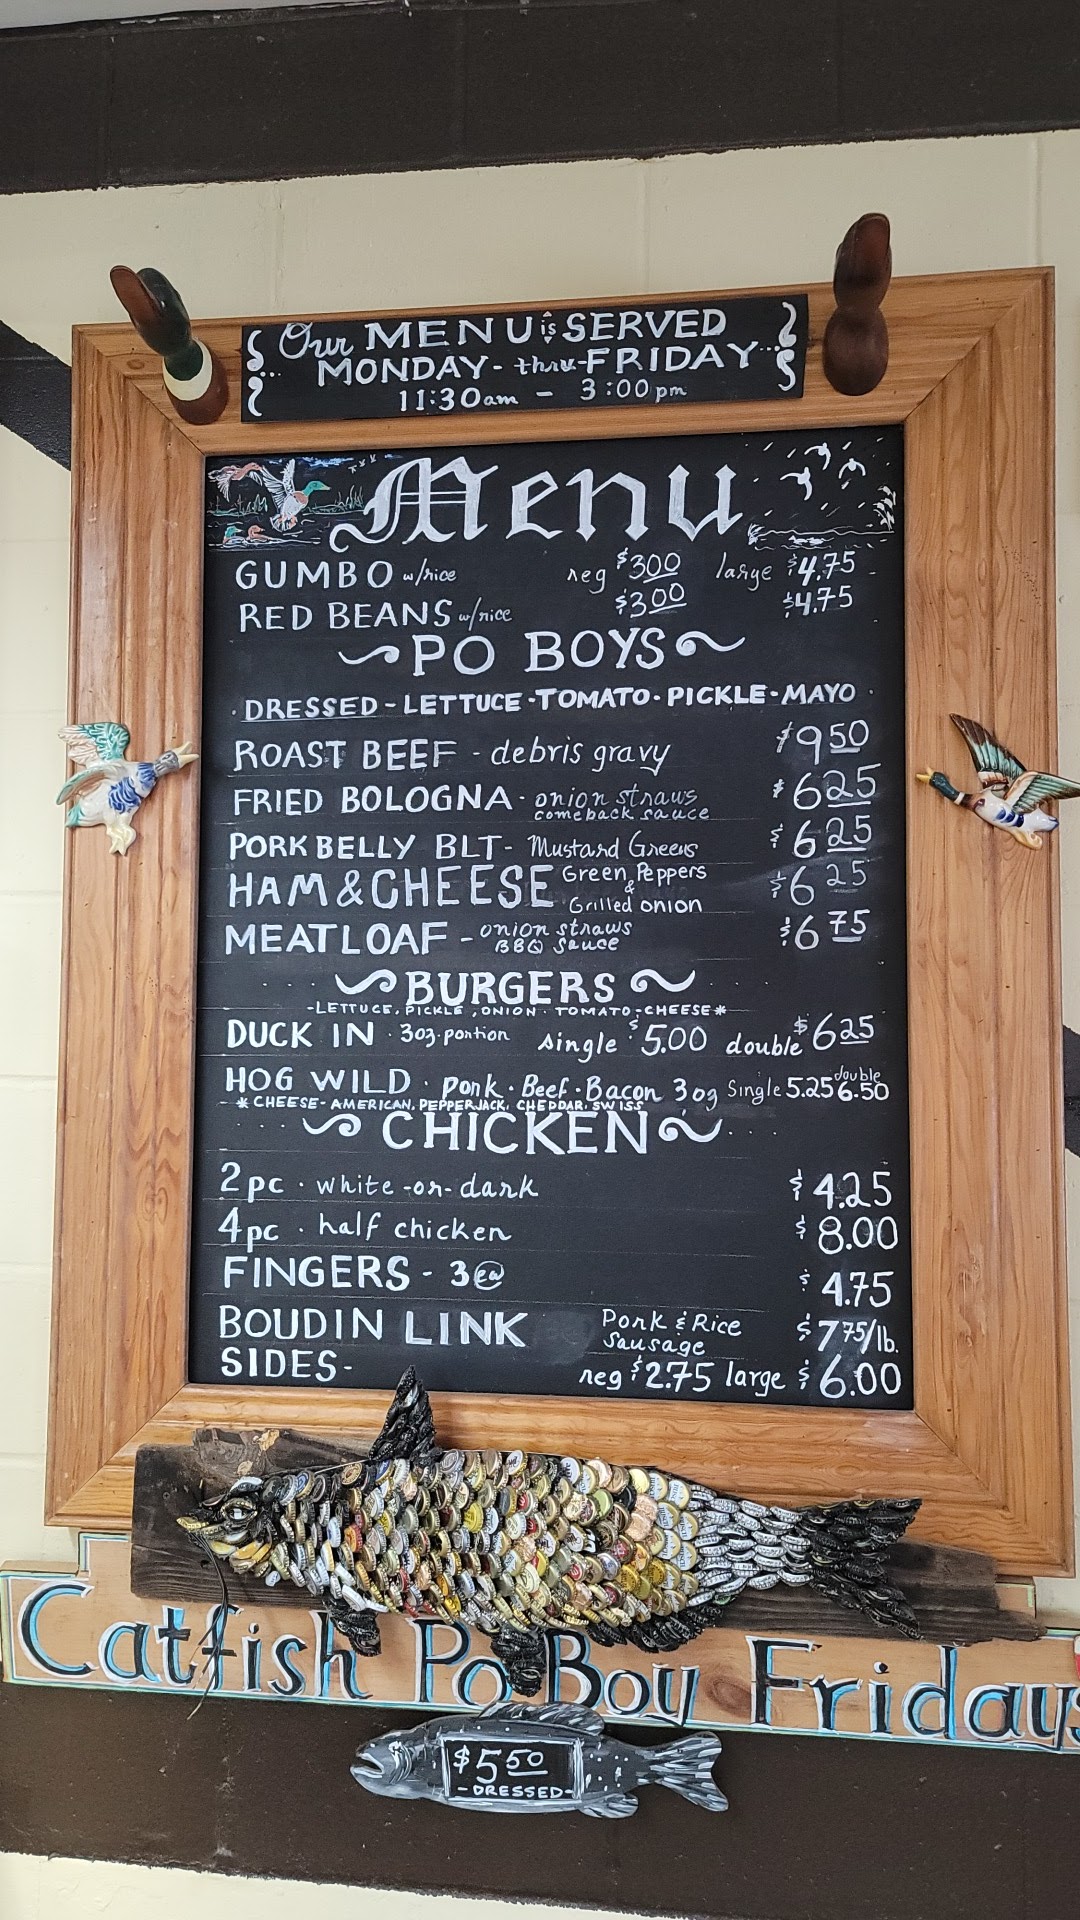 Our MENU is SERVED
MONDAY - thru - FRIDAY
11:30am - 3:00pm
Menu
GUMBO w/rice reg $3.00 large $4.75
RED BEANS w/rice $3.00 $4.75
PO BOYS
DRESSED - LETTUCE - TOMATO - PICKLE - MAYO
ROAST BEEF - debris gravy $9.50
FRIED BOLOGNA - onion straws comeback sauce $6.25
PORK BELLY BLT - Mustard Greens $6.25
HAM & CHEESE Green Peppers & Grilled onion $6.25
MEATLOAF - onion straws BBQ sauce $6.75
BURGERS
- LETTUCE, PICKLE, ONION - TOMATO - CHEESE*
DUCK IN · 3oz. portion single $5.00 double $6.25
HOG WILD · Pork · Beef · Bacon 3oz Single 5.25 double 6.50
* CHEESE - AMERICAN, PEPPERJACK, CHEDDAR, SWISS
CHICKEN
2pc · white -or- dark $4.25
4pc · half chicken $8.00
FINGERS - 3ea $4.75
BOUDIN LINK Pork & Rice Sausage $7.75/lb.
SIDES - reg $2.75 large $6.00
Catfish Po Boy Fridays
$5.50
- DRESSED -